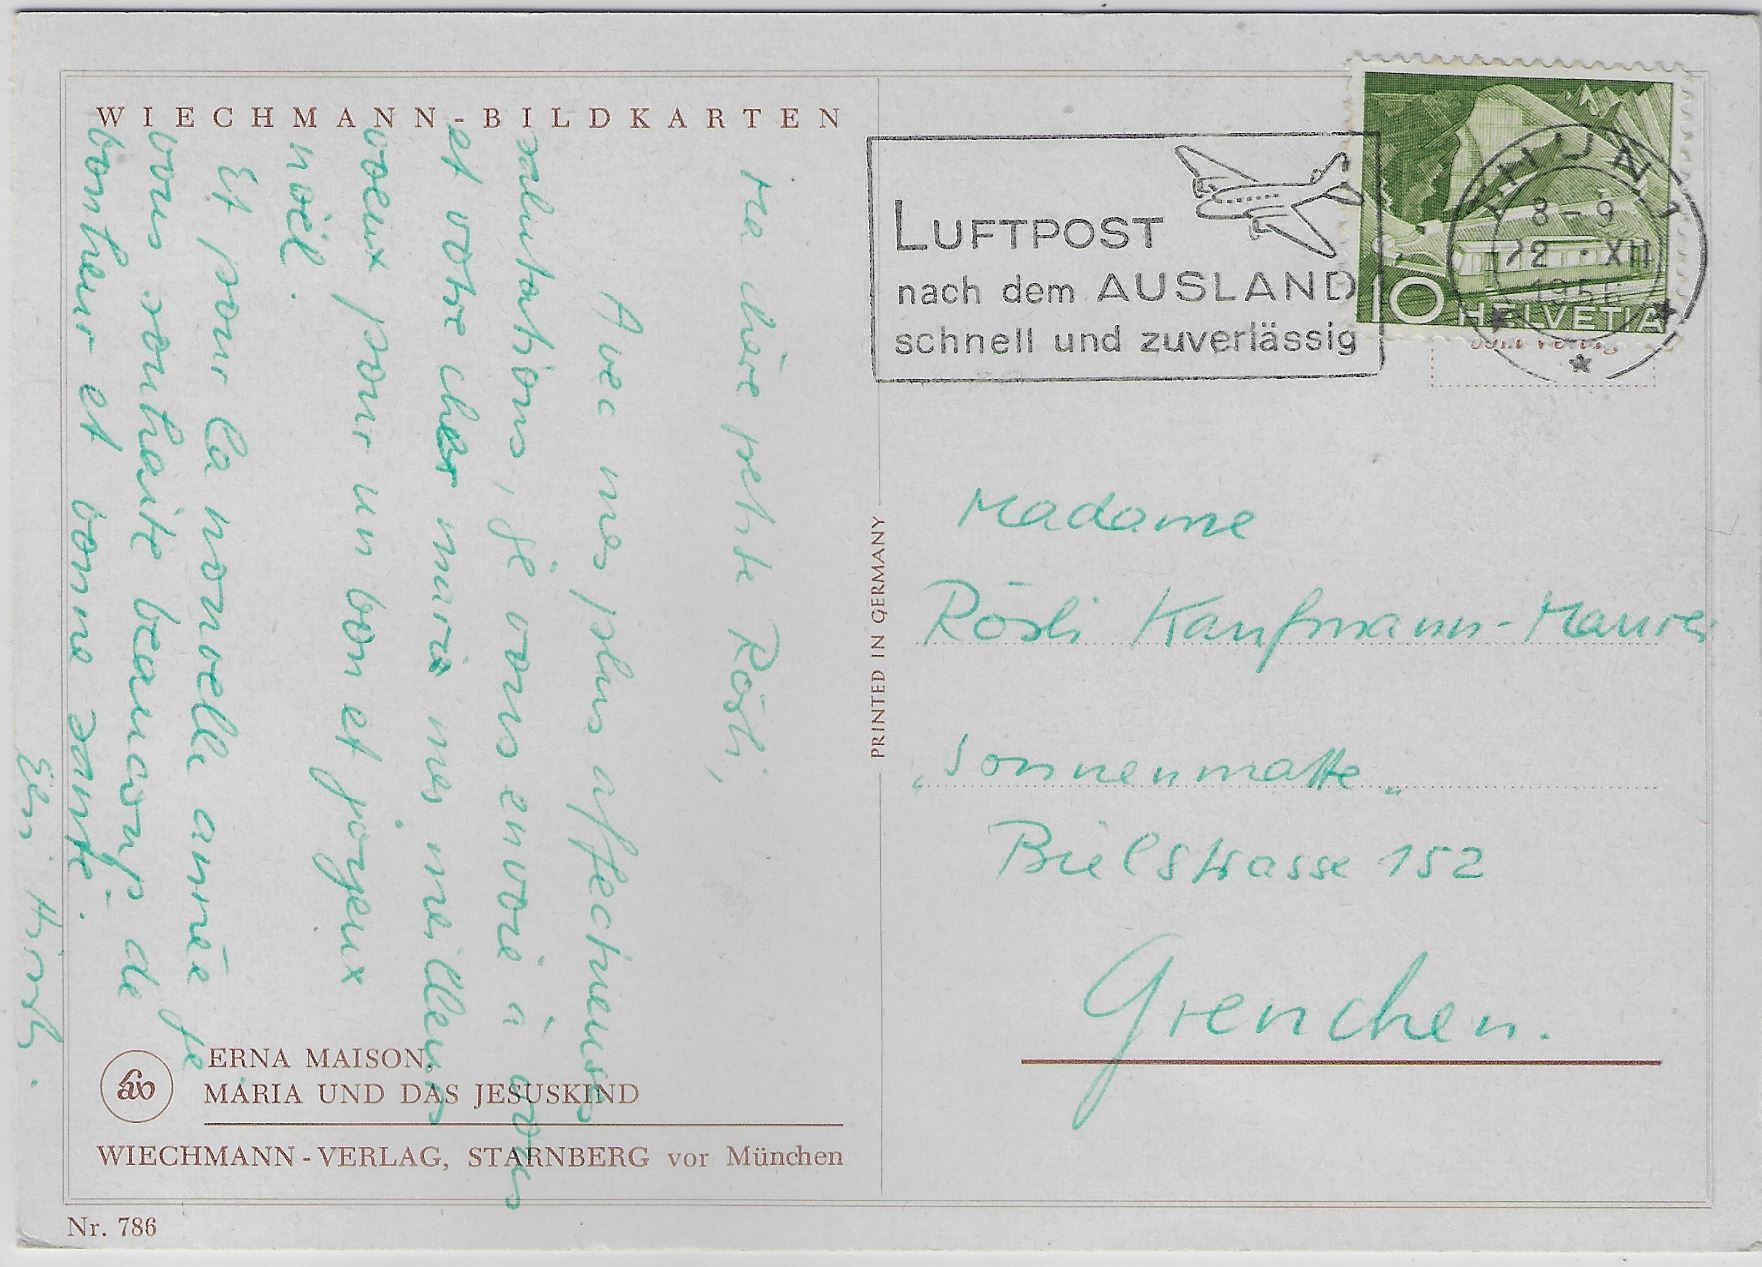 WIECHMANN-BILDKARTEN
Ma chère petite Rösli,
Avec mes plus affectueuses
salutations, je vous envoie à vous
et votre cher mari mes meilleurs
voeux pour un bon et joyeux
noël.
Et pour la nouvelle année je
vous souhaite beaucoup de
bonheur et bonne santé.
ERNA MAISON,
MARIA UND DAS JESUSKIND
WIECHMANN-VERLAG, STARNBERG vor München
Nr. 786
PRINTED IN GERMANY
LUFTPOST
nach dem AUSLAND
schnell und zuverlässig
THUN 1
8-9
22.XII
1956
10 HELVETIA
Madame
Rösli Kaufmann-Maurer
„Sonnenmatte„
Bielstrasse 152
Grenchen.